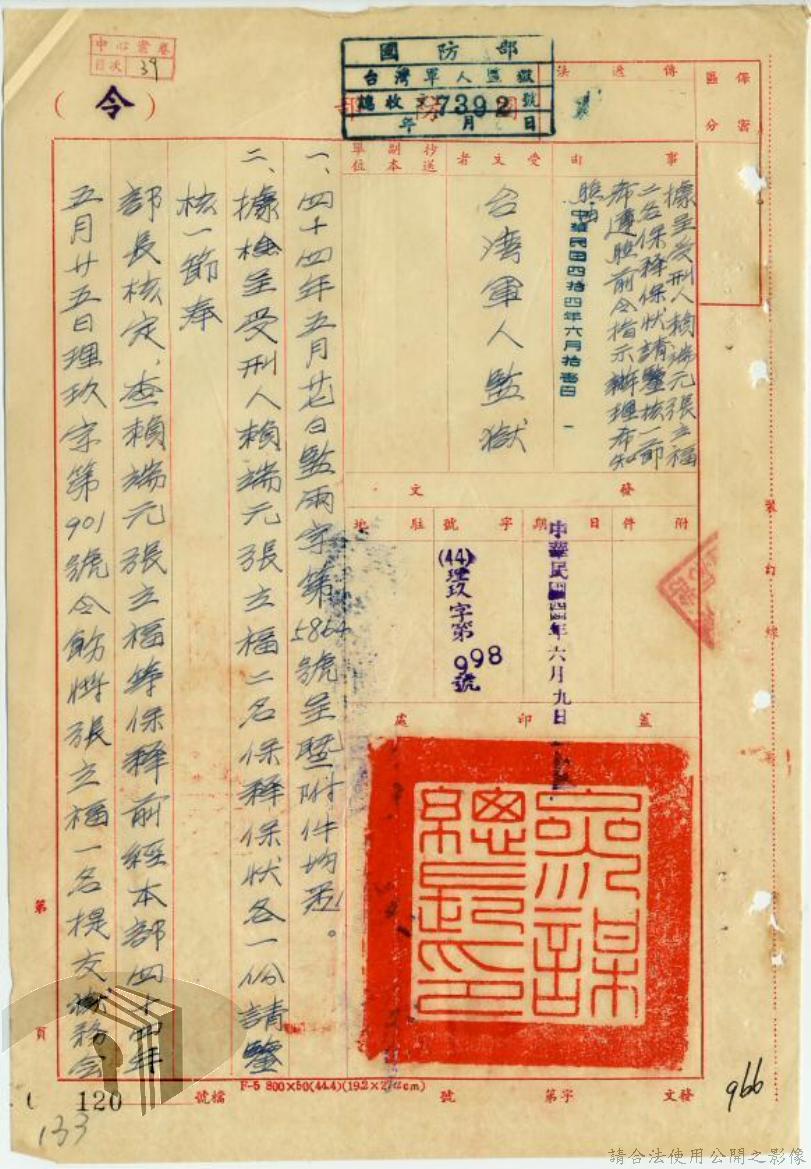 保密
區分
傳遞法
國防部
台灣軍人監獄
總收文 7392 號
年 月 日
中心雲卷
目次 39
(令)
事由
據呈受刑人賴端元張立福
二名保釋保狀請鑒核一節
希遵照前令指示辦理希知
照由
中華民國四拾四年六月拾壹日
受文者
台灣軍人監獄
抄送副本單位
發文
附件
日期
中華民國四四年六月九日
字號
(44)理玖字第
998號
駐地
蓋印處
參謀總長印
一、四十四年五月廿七日監兩字第5864號呈暨附件均悉。
二、據檢呈受刑人賴端元張立福二名保釋保狀各一份請鑒
核一節奉
部長核定、查賴端元張立福等保釋前經本部四十四年
五月廿五日理玖字第901號令飭將張立福一名提交
務會
裝訂線
第 頁
F-5 800×50(44.4)(19.2×27.2cm)
發文 字第 號
檔號
120
133
966
請合法使用公開之影像